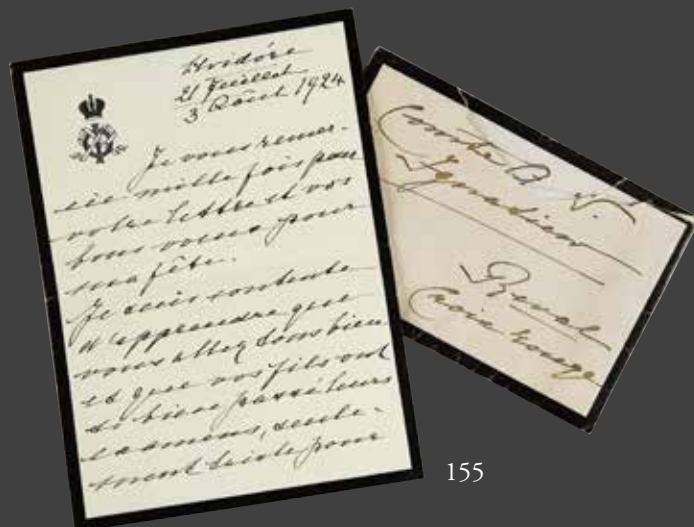 Hvidöre
21 Juillet
3 Août 1924
Je vous remer-
cie mille fois pour
votre lettre et vos
bons voeux pour
ma fête.
Je suis contente
d'apprendre que
vous allez tous bien
et que vos fils ont
si bien passé leurs
examens, seule-
ment triste pour
Comte
Ignatiew
Reval
Croix rouge
155